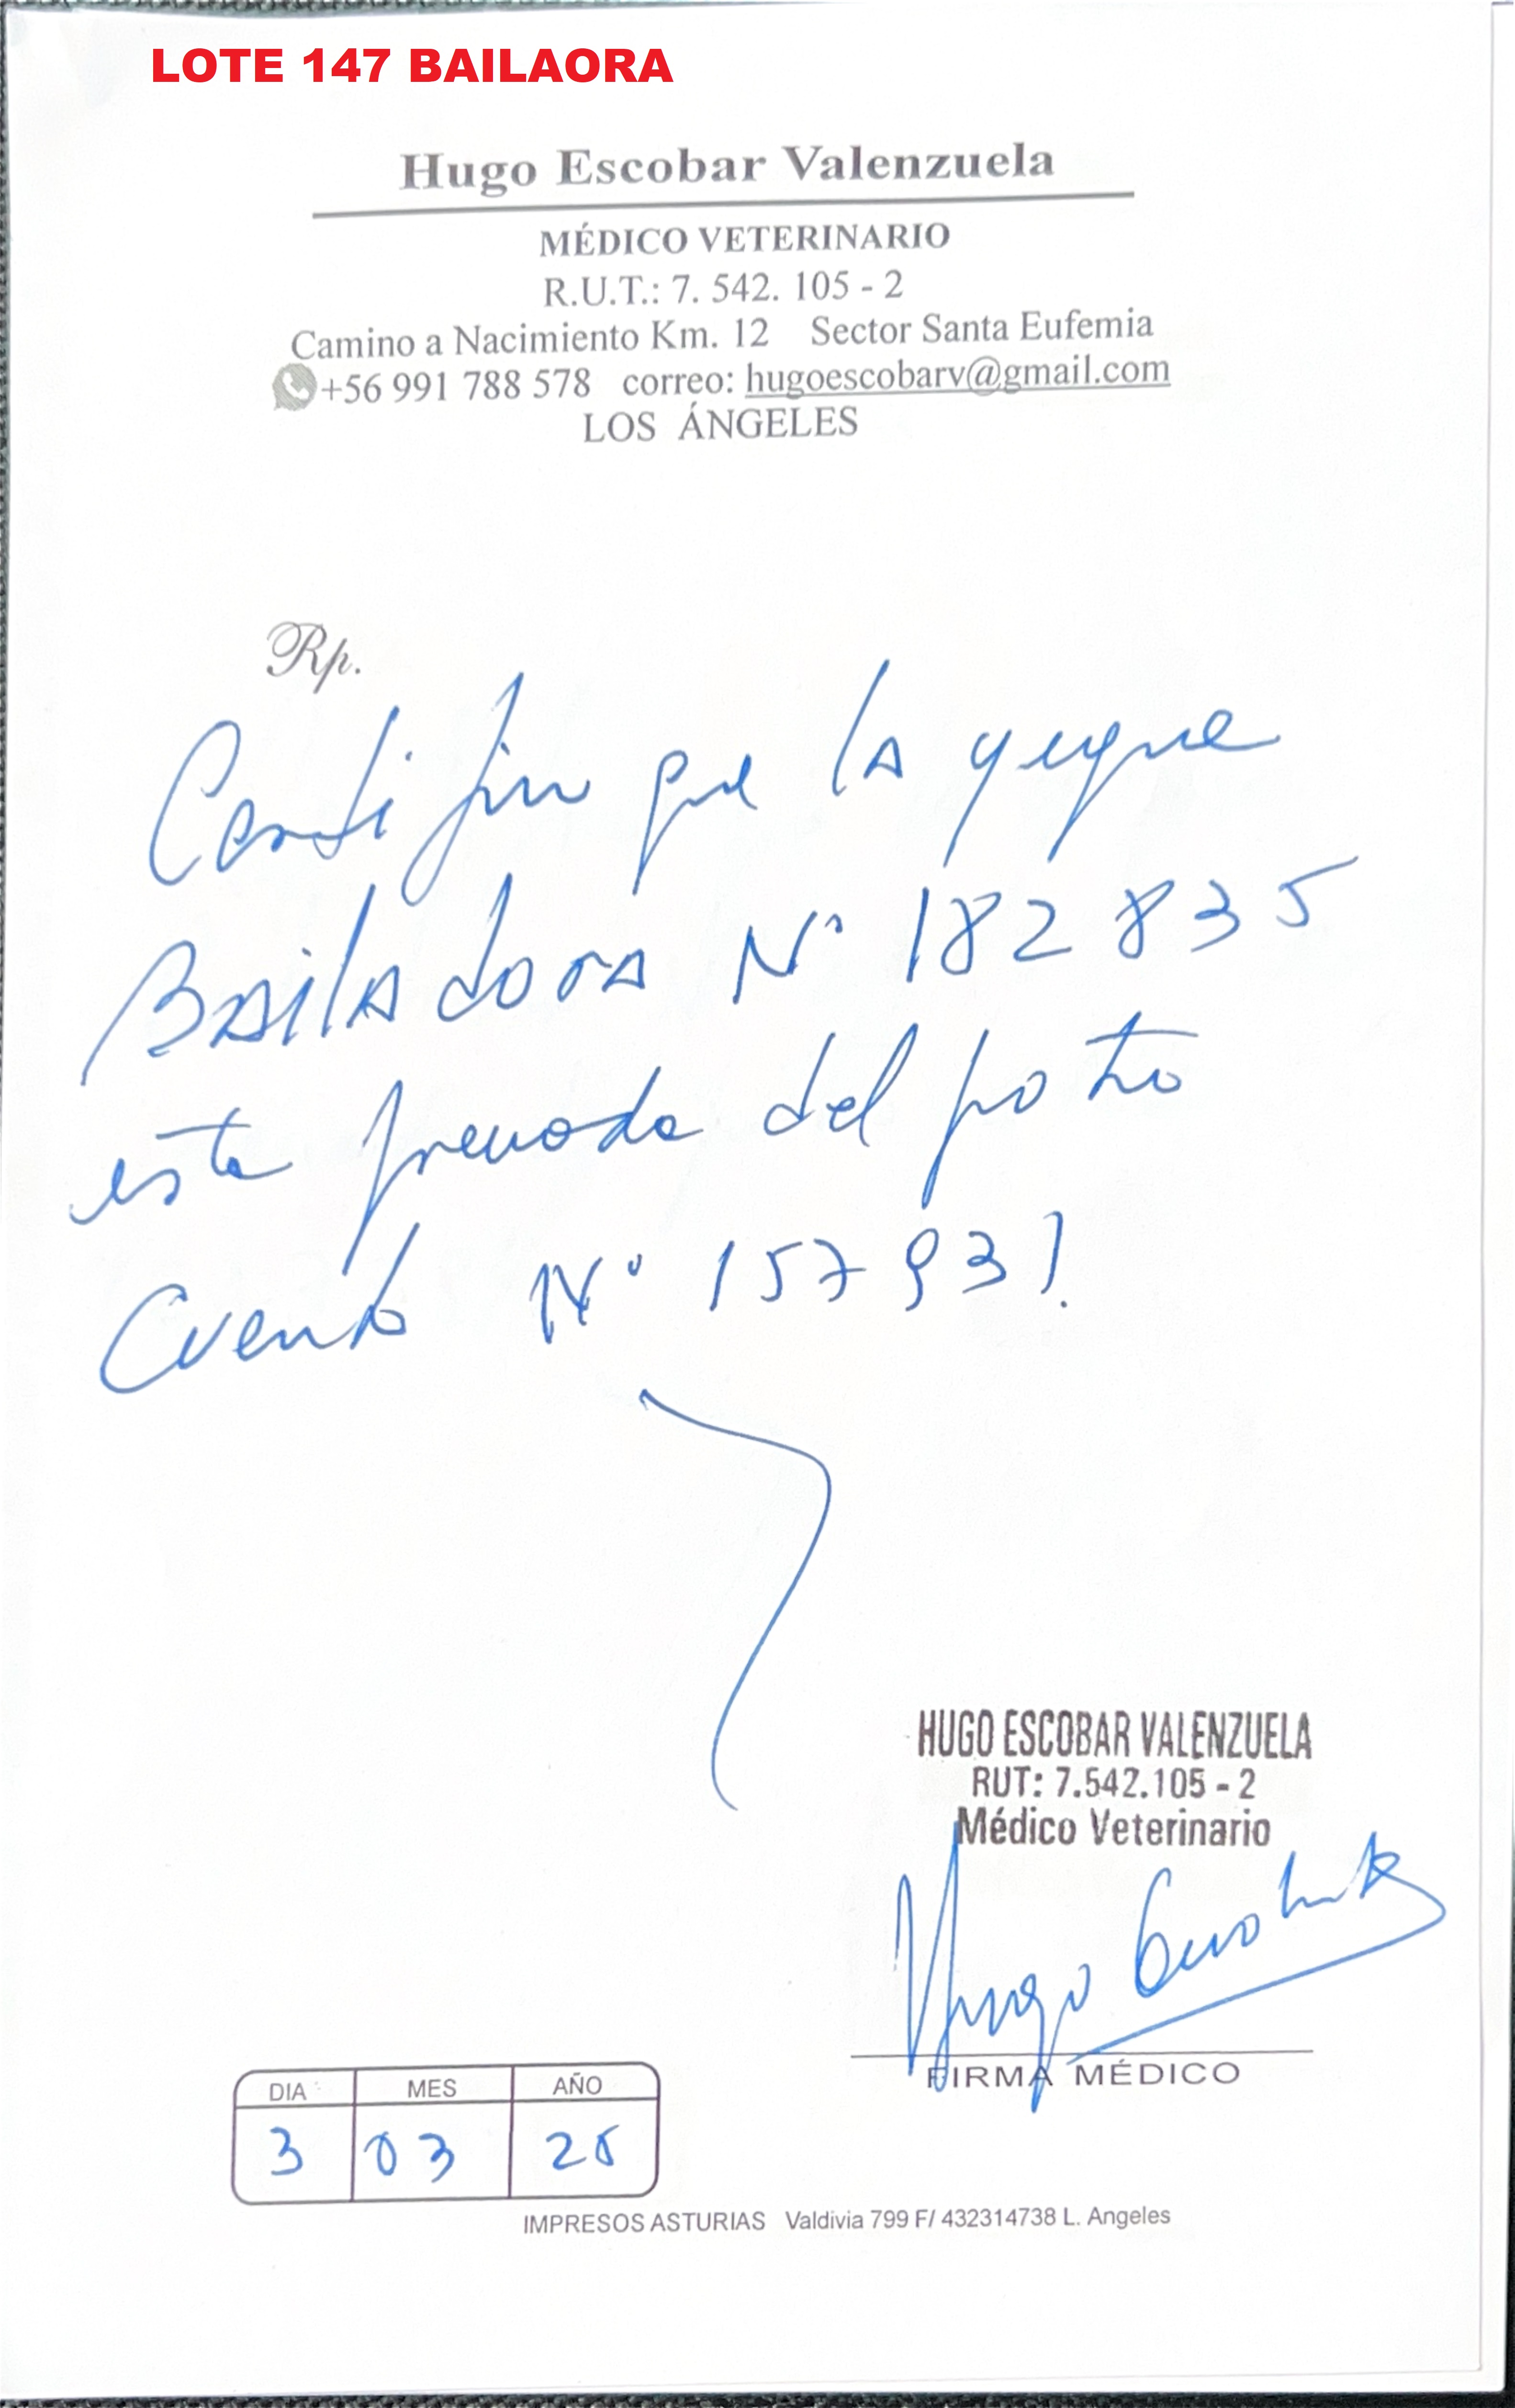 LOTE 147 BAILAORA
Hugo Escobar Valenzuela
MÉDICO VETERINARIO
R.U.T.: 7. 542. 105 - 2
Camino a Nacimiento Km. 12 Sector Santa Eufemia
+56 991 788 578 correo: hugoescobarv@gmail.com
LOS ÁNGELES
Rp.
Certifico que la yegua
Bailadora N° 182835
esta preñada del potro
Cuento N° 157931.
HUGO ESCOBAR VALENZUELA
RUT: 7.542.105 - 2
Médico Veterinario
Hugo Escobar
FIRMA MÉDICO
DIA MES AÑO
3 03 25
IMPRESOS ASTURIAS Valdivia 799 F/ 432314738 L. Angeles